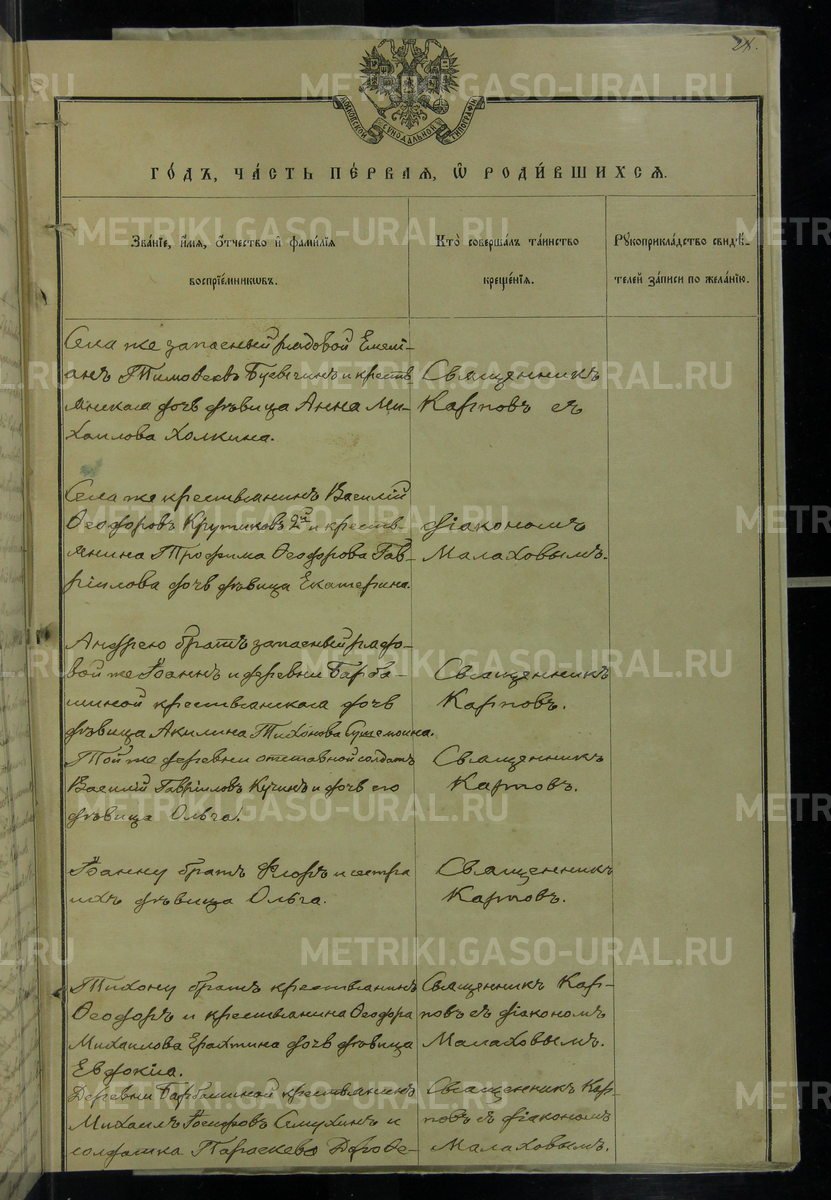 24.
МОСКОВСКОЙ СѴНОДАЛЬНОЙ ТИПОГРАФІИ
ГО́ДЪ, ЧА́СТЬ ПЕ́РВАЯ, Ѡ҆ РОДИ́ВШИХСЯ.
Зва́нїе, и҆́мѧ, ѻ҆́тчество и҆ фами́лїѧ
воспрїе́мникѡвъ.
Кто̀ соверша́лъ та́инство
креще́нїѧ.
Рꙋкоприкла́дство свидѣ́-
телей за́писи по жела́нїю.
Села же запасный рядовой Емелі-
анъ Тимоѳеевъ и крестъ
янская дочь дѣвица Анна Ми-
хаилова Холкина.
Священникъ
Карповъ съ
Села же крестьянинъ Василій
Ѳеодоровъ Крутиковъ 2й и кресть-
янина Трофима Ѳеодорова Гав-
ріилова дочь дѣвица Екатерина.
діакономъ
Малаховымъ.
Андрею братъ запасный рядо-
вой же Іоаннъ и деревни Барба-
шиной крестьянская дочь
дѣвица Акилина Тихонова
Священникъ
Карповъ.
Той же деревни отставной солдатъ
Василій Гавріиловъ Кучинъ и дочь его
дѣвица Ольга.
Священникъ
Карповъ.
Іоанну братъ Флоръ и сестра
ихъ дѣвица Ольга.
Священникъ
Карповъ.
Тихону братъ крестьянинъ
Ѳеодоръ и крестьянина Ѳеодора
Михаилова Ерахтина дочь дѣвица
Евдокіа.
Священникъ Кар-
повъ съ діакономъ
Малаховымъ.
Деревни Барбашиной крестьянинъ
Михаилъ Іосифовъ Семухинъ и
солдатка Параскева Дерове-
Священникъ Кар-
повъ съ діакономъ
Малаховымъ.
METRIKI.GASO-URAL.RU